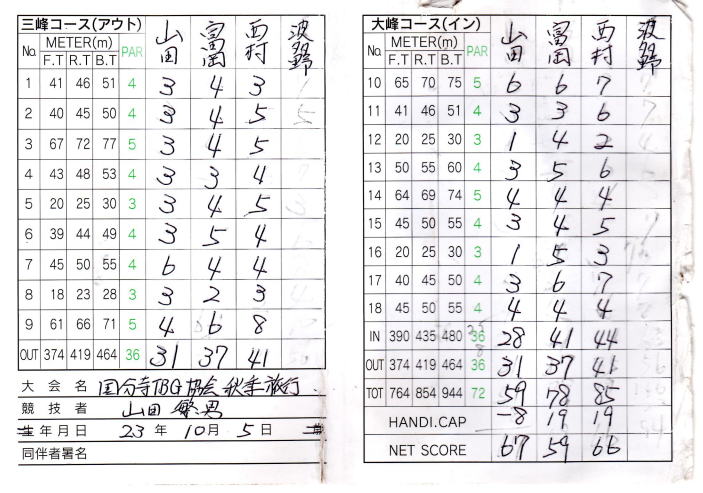 三峰コース(アウト) 山田 富岡 西村 波多野
No. METER(m) PAR
F.T R.T B.T
1 41 46 51 4 3 4 3
2 40 45 50 4 3 4 5 5
3 67 72 77 5 3 4 5
4 43 48 53 4 3 3 4
5 20 25 30 3 3 4 5
6 39 44 49 4 3 5 4
7 45 50 55 4 6 4 4
8 18 23 28 3 3 2 3
9 61 66 71 5 4 6 8
OUT 374 419 464 36 31 37 41
大会名 国分寺TBG協会 秋季旅行
競技者 山田 繁男
生年月日 23年 10月 5日
同伴者署名
大峰コース(イン) 山田 富岡 西村 波多野
No. METER(m) PAR
F.T R.T B.T
10 65 70 75 5 6 6 7
11 41 46 51 4 3 3 6 7
12 20 25 30 3 1 4 2
13 50 55 60 4 3 5 6
14 64 69 74 5 4 4 4
15 45 50 55 4 3 4 5 7
16 20 25 30 3 1 5 3
17 40 45 50 4 3 6 7
18 45 50 55 4 4 4 4
IN 390 435 480 36 28 41 44
OUT 374 419 464 36 31 37 41
TOT 764 854 944 72 59 78 85
HANDI.CAP -8 19 19
NET SCORE 67 59 66